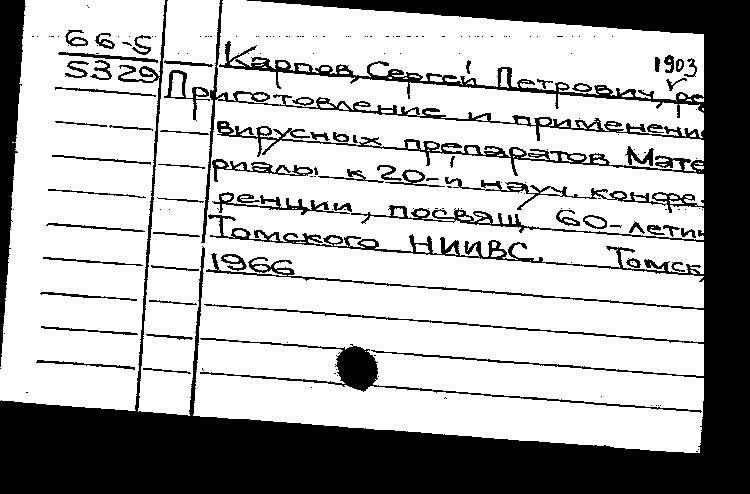 66-5
5329
1903
Карпов, Сергей Петрович, ре
Приготовление и применени
вирусных препаратов. Мате
риалы к 20-й науч. конфе-
ренции, посвящ. 60-лети
Томского НИИВС. Томск,
1966